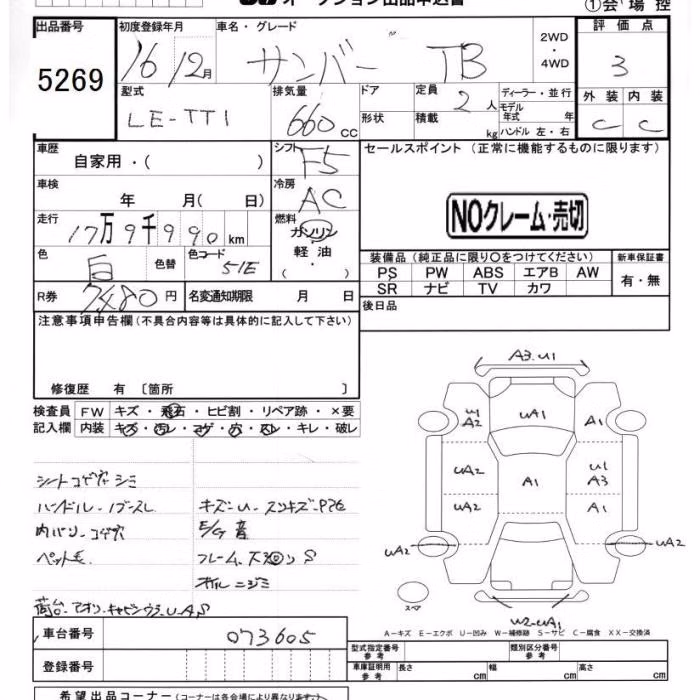 オークション出品申込書 ①会場控
出品番号 初度登録年月 車名・グレード 評価点
5269 16 12月 サンバー TB 2WD・4WD 3
型式 排気量 ドア 定員 2人 ディーラー・並行 外装 内装
LE-TT1 660cc 形状 積載 kg モデル年式 年 C C
ハンドル 左・右
車歴 自家用・( ) シフト F5 セールスポイント(正常に機能するものに限ります)
車検 年 月( 日) 冷房 AC
走行 17万9千990km 燃料 ガソリン 軽油 ・( ) NOクレーム・売切
色 白 色替 色コード 51E 装備品(純正品に限り○をつけてください) 新車保証書
PS PW ABS エアB AW 有・無
SR ナビ TV カワ
R券 7480円 名変通知期限 月 日 後日品
注意事項申告欄(不具合内容等は具体的に記入して下さい)
修復歴 有〔箇所 〕
検査員 FW キズ・飛石・ヒビ割・リペア跡・×要
記入欄 内装 キズ・汚レ・コゲ・穴・スレ・キレ・破レ
A3.U1
U1 A2 UA1 A1
UA2 A1 U1 A3
UA2 A1
UA2 UA2
スペア
W2-UA1
シートコゲ穴シミ
ハンドル・ノブスレ キズ-U-スリキズ-
内バリ-コゲ穴 E/G音
ペット毛 フレーム、下回り S
オイルニジミ
荷台、アオリ、キャビンウラ-U-A,S
A−キズ E−エクボ U−凹み W−補修跡 S−サビ C−腐食 XX−交換済
車台番号 073605
登録番号
型式指定番号 参考 類別区分番号 参考
車庫証明用 参考 長さ cm 幅 cm 高さ cm
希望出品コーナー(コーナーは各会場により異なりま